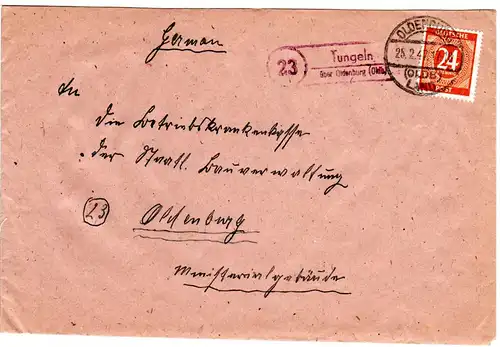 German
23
Tungeln
über Oldenburg (Oldb)
OLDENBU
25.2.4
(OLDB)
DEUTSCHE
24
POST
An
die Betriebskrankenkasse
der Staatl. Bauverwaltung
23
Oldenburg
Ministerialgebäude